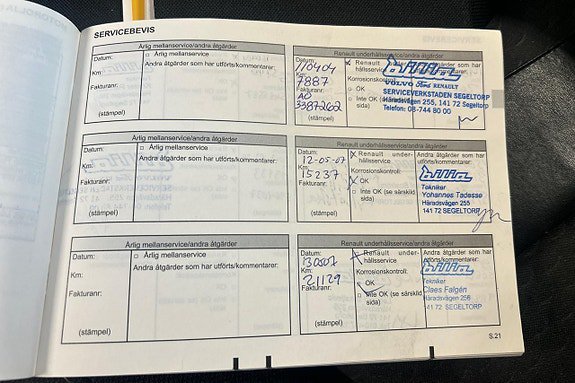 SERVICEBEVIS
Årlig mellanservice/andra åtgärder
Datum:
□ Årlig mellanservice
Andra åtgärder som har utförts/kommentarer:
Km:
Fakturanr:
(stämpel)
Renault underhållsservice/andra åtgärder
Datum:
110404
Km:
7887
Fakturanr:
AO
3387262
(stämpel)
x Renault under-
hållsservice
Korrosionskontroll:
□ OK
□ Inte OK (se särskild
sida)
bilia
VOLVO Ford RENAULT
SERVICEVERKSTADEN SEGELTORP
Häradsvägen 255, 141 72 Segeltorp
Telefon: 08-744 80 00
Årlig mellanservice/andra åtgärder
Datum:
□ Årlig mellanservice
Andra åtgärder som har utförts/kommentarer:
Km:
Fakturanr:
(stämpel)
Renault underhållsservice/andra åtgärder
Datum:
12-05-07
Km:
15237
Fakturanr:
(stämpel)
x Renault under-
hållsservice
Korrosionskontroll:
x OK
□ Inte OK (se särskild
sida)
Andra åtgärder som har
utförts/kommentarer:
bilia
Tekniker
Yohannes Tadesse
Häradsvägen 255
141 72 SEGELTORP
Årlig mellanservice/andra åtgärder
Datum:
□ Årlig mellanservice
Andra åtgärder som har utförts/kommentarer:
Km:
Fakturanr:
(stämpel)
Renault underhållsservice/andra åtgärder
Datum:
130507
Km:
21129
Fakturanr:
(stämpel)
x Renault under-
hållsservice
Korrosionskontroll:
OK
□ Inte OK (se särskild
sida)
Andra åtgärder som har
utförts/kommentarer:
bilia
Tekniker
Claes Falgén
Häradsvägen 255
141 72 SEGELTORP
S.21